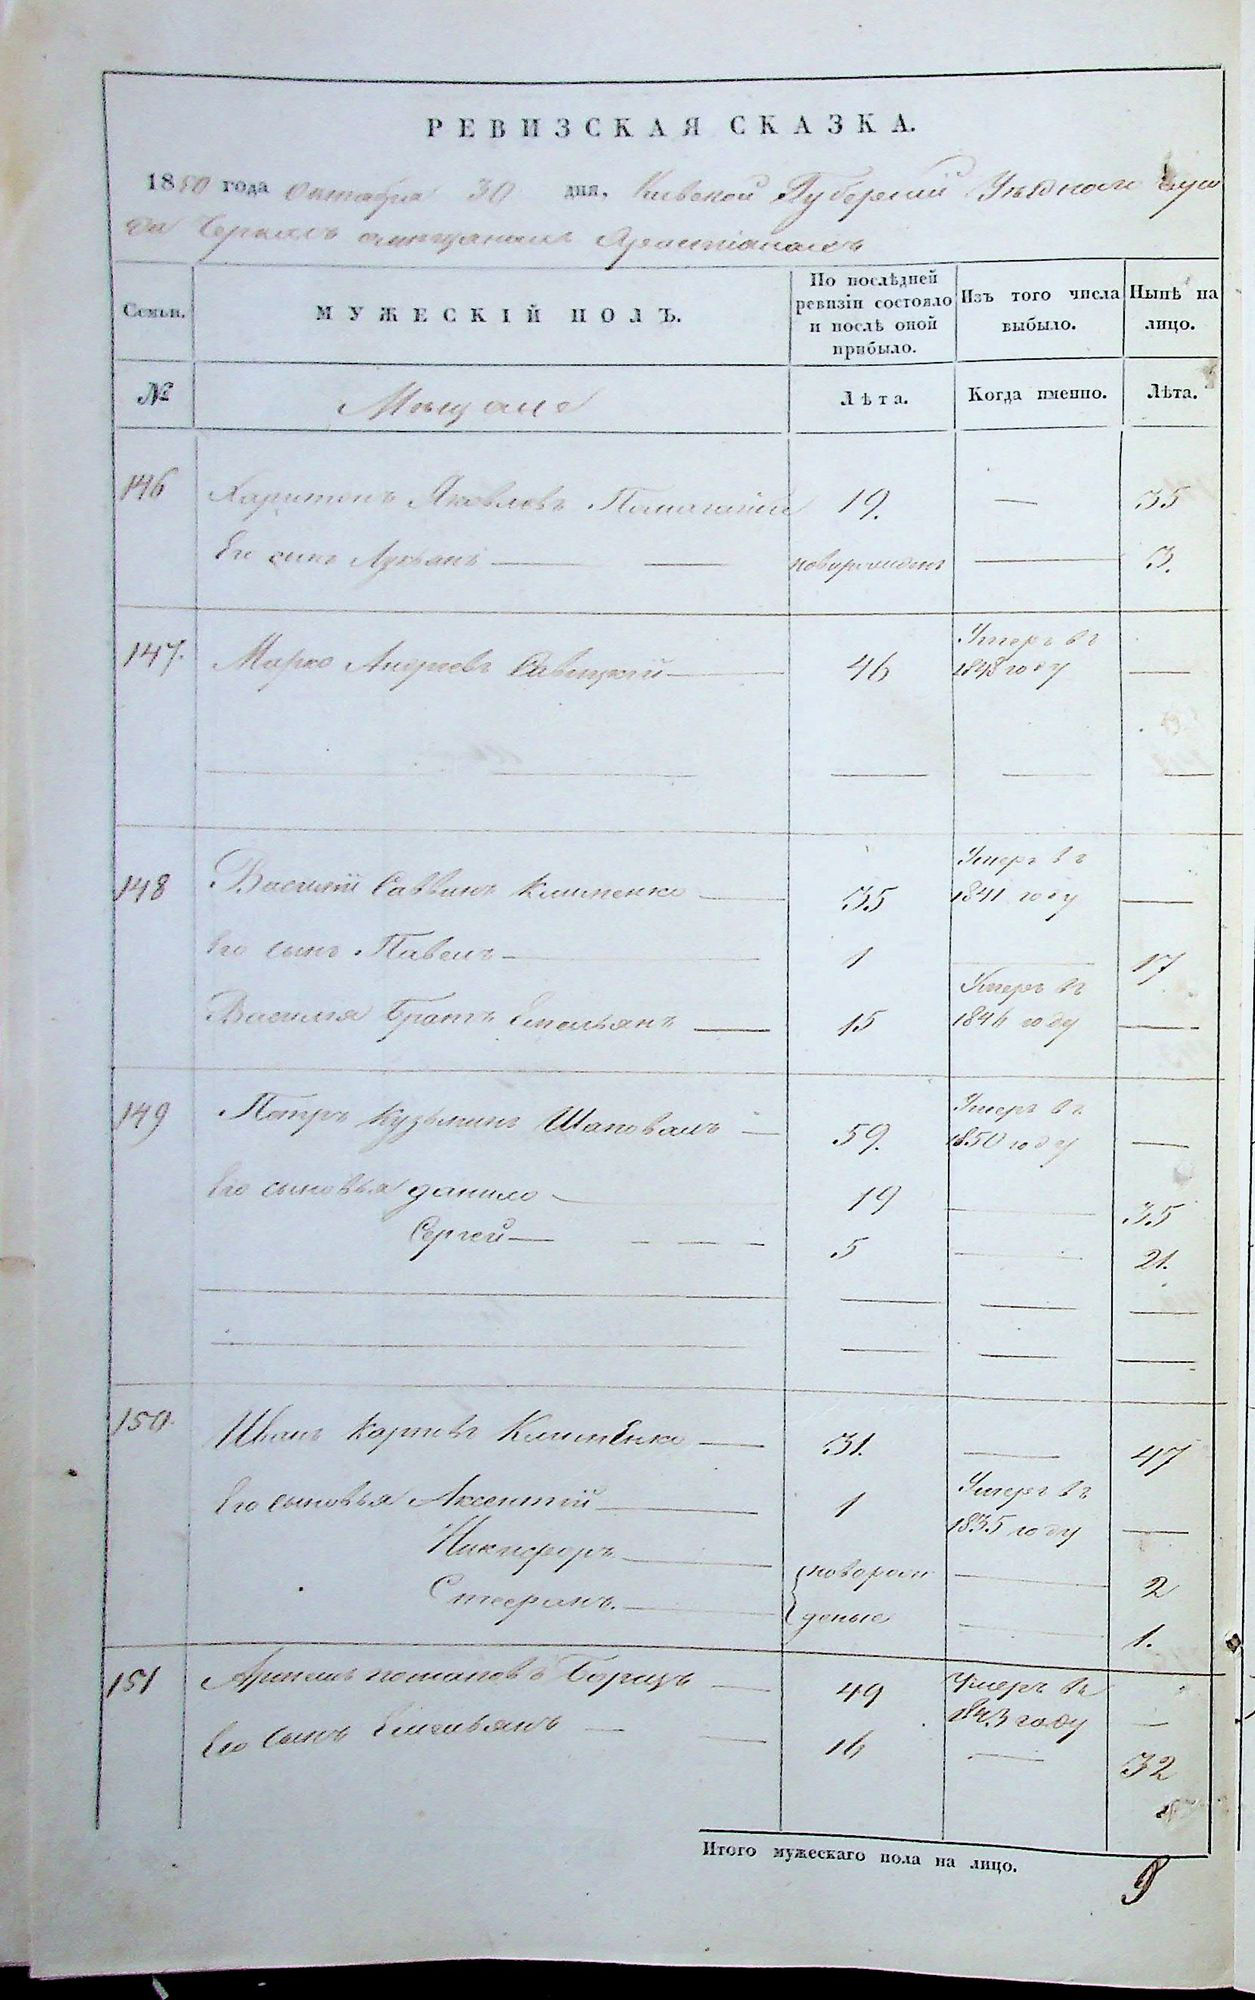 РЕВИЗСКАЯ СКАЗКА.
1850 года Октября 30 дня, Киевской Губерніи Уѣзднаго Горо
да Черкасъ мещанамъ христіанамъ
Семьи. МУЖЕСКІЙ ПОЛЪ. По послѣдней ревизіи состояло и послѣ оной прибыло. Изъ того числа выбыло. Нынѣ на лицо.
№ Мѣщане Лѣта. Когда именно. Лѣта.
146 Харитонъ Яковлевъ 19. — 35
Его сынъ Лукьянъ — — новорожденъ — 3.
147. Марко Андреевъ Савицкій — 46 Умеръ въ 1848 году —
148 Василій Саввинъ Клименко — 35 Умеръ въ 1841 году —
Его сынъ Павелъ — 1 — 17
Василія братъ Емельянъ — 15 Умеръ въ 1846 году —
149 Петръ Кузьминъ Шаповалъ — 59. Умеръ въ 1850 году —
Его сыновья Данило — 19 — 35
Сергей — 5 — 21.
150. Иванъ Карповъ Клименко — 31. — 47
Его сыновья Аксентій — 1 Умеръ въ 1835 году —
Никифоръ — новорож — 2
Стефанъ. — деные — 1.
151 Артемъ Потаповъ Борищъ — 49 Умеръ въ 1843 году —
Его сынъ Емельянъ — 16 — 32
Итого мужескаго пола на лицо. 9